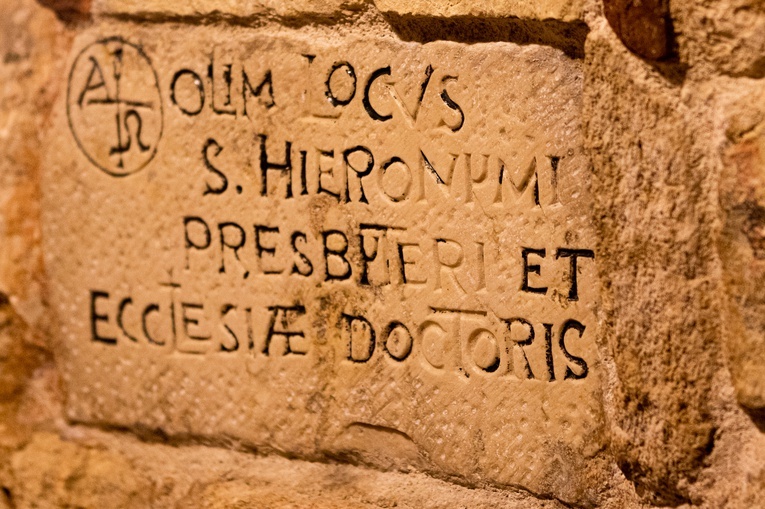 A Ω OLIM LOCUS
S. HIERONYMI
PRESBYTERI ET
ECCLESIÆ DOCTORIS